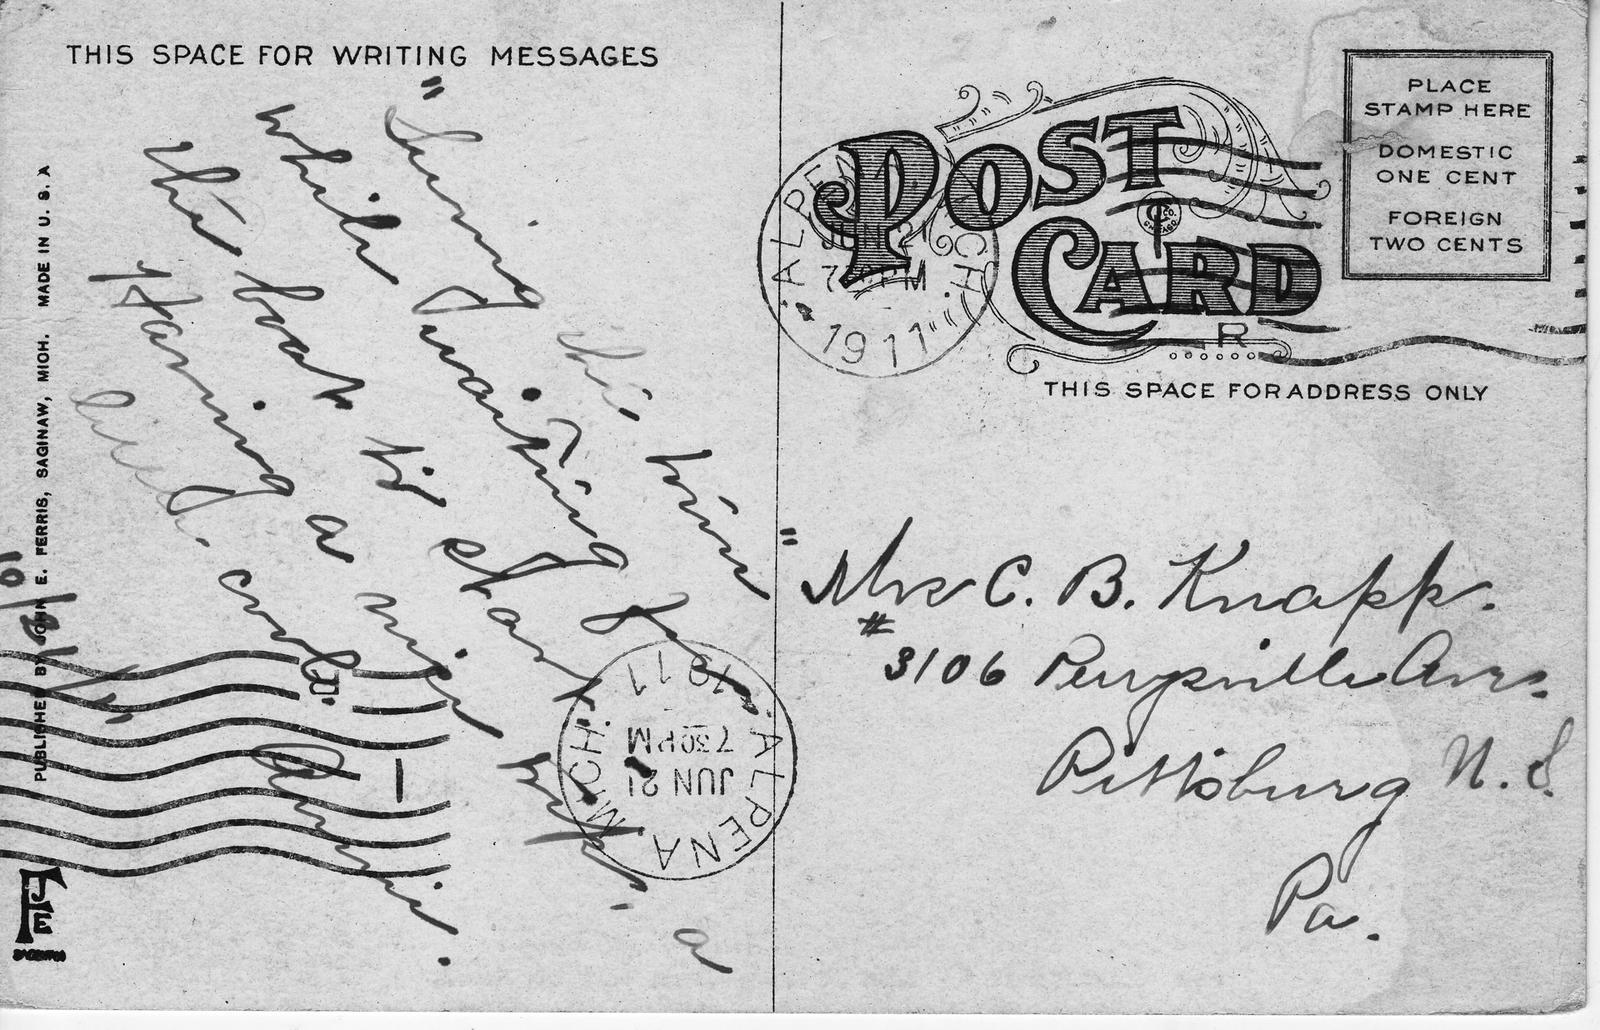 THIS SPACE FOR WRITING MESSAGES
"Seeing this here
while waiting for
the boat to start.
Having a nice trip. a
little cool.
Annie.
6/21/10
PUBLISHED BY JOHN E. FERRIS, SAGINAW, MICH. MADE IN U. S. A
JEF
SAGINAW
ALPENA MICH.
JUN 21
730PM
1911
POST
CARD
CO.
CHICAGO
R
ALPENA MICH.
JUN 21
7 30 PM
1911
THIS SPACE FOR ADDRESS ONLY
PLACE
STAMP HERE
DOMESTIC
ONE CENT
FOREIGN
TWO CENTS
"Mrs C. B. Knapp.
# 3106 Perrysville Ave.
Pittsburg N. S.
Pa.